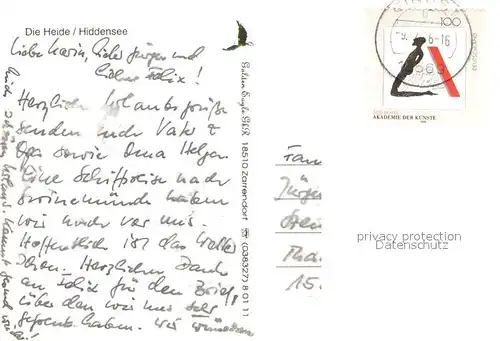 Die Heide / Hiddensee
Liebe Karin, lieber Jürgen und
lieber Felix!
Herzliche Urlaubsgrüße
senden Euch Vater &
Opa sowie Oma Helga.
Eine Schiffsreise nach
Swinemünde haben
wir noch vor uns.
Hoffentlich ist das Wetter
schön. Herzlichen Dank
an Felix für den Brief,
über den wir uns sehr
gefreut haben. Wir wünschen
Euch
Golden Eagle GbR 18510 Zarrendorf ☎ (038327) 8 01 11
100
6-16
300 JAHRE
AKADEMIE DER KÜNSTE
Fam
Jürg
15.
privacy protection
Datenschutz